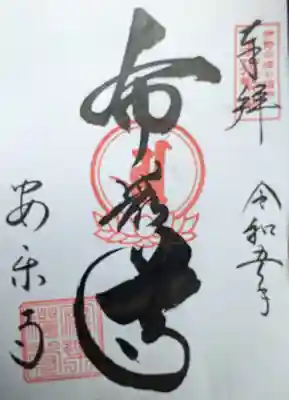 奉拝
令和五年
布袋尊
安楽寺